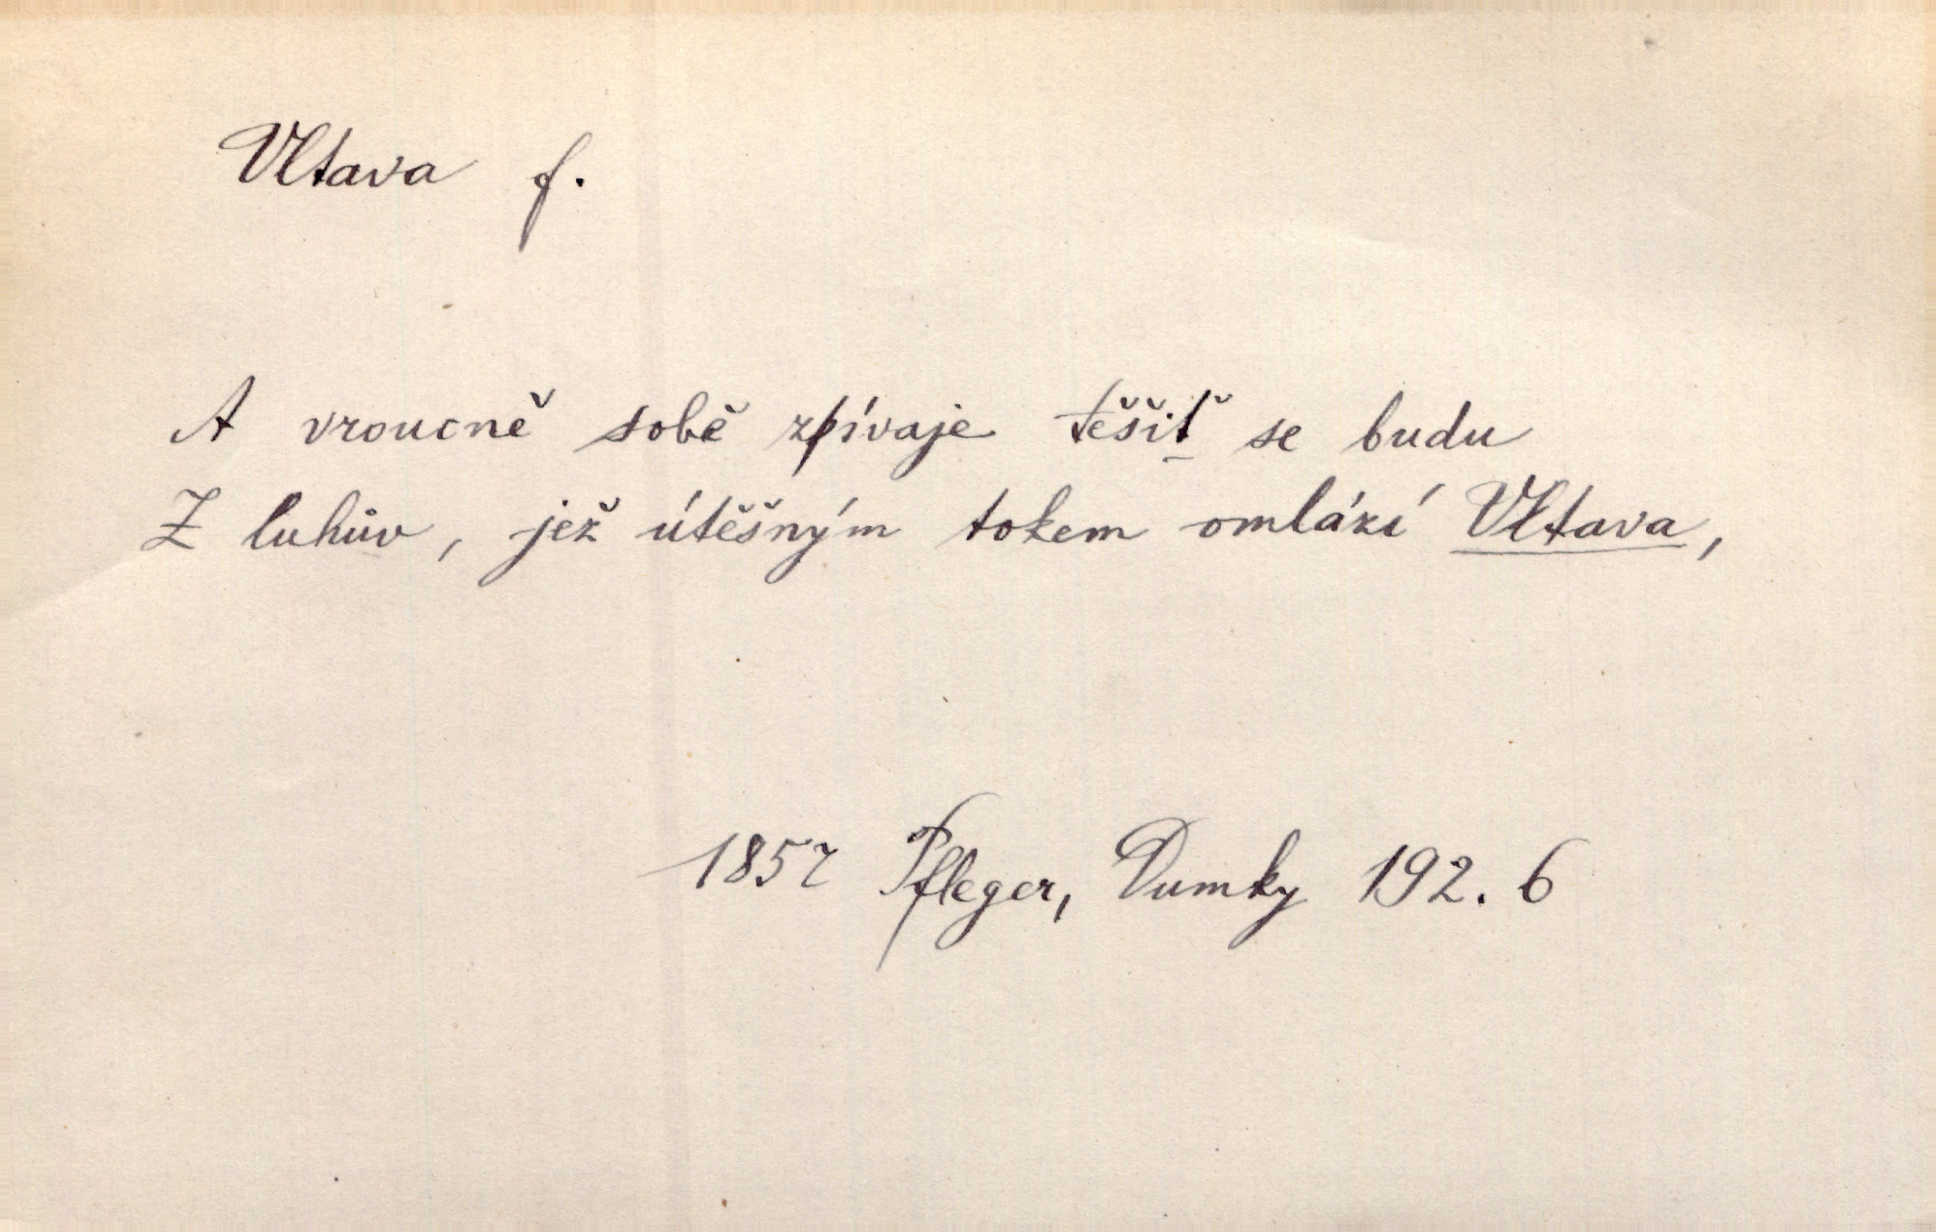 Vltava f.
A vroucně sobě zpívaje těšiť se budu
Z luhův, jež útěšným tokem omlází Vltava,
1857 Pfleger, Dumky 192. 6